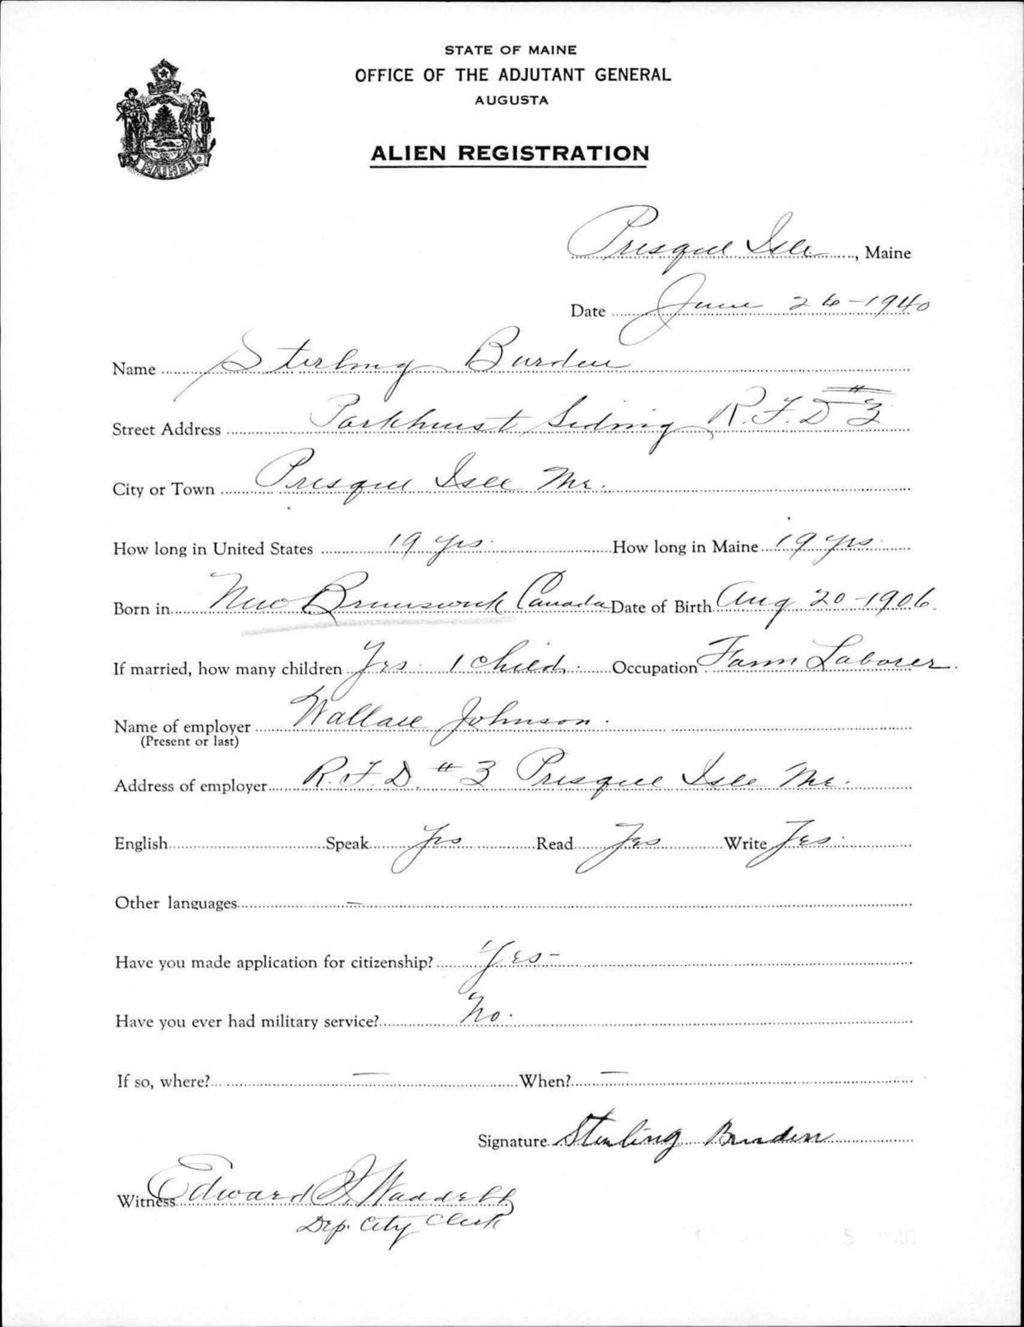 STATE OF MAINE
OFFICE OF THE ADJUTANT GENERAL
AUGUSTA
ALIEN REGISTRATION
MAINE
Presque Isle, Maine
Date June 26-1940
Name Sterling Burden
Street Address Parkhurst Siding R.F.D #3
City or Town Presque Isle Me.
How long in United States 19 yrs. How long in Maine 19 yrs.
Born in New Brunswick Canada Date of Birth Aug 20-1906.
If married, how many children Yes. 1 child. Occupation Farm Laborer.
Name of employer Wallace Johnson.
(Present or last)
Address of employer R.F.D. #3 Presque Isle Me.
English Speak Yes Read Yes Write Yes.
Other languages —
Have you made application for citizenship? Yes-
Have you ever had military service? No.
If so, where? — When? —
Signature Sterling Burden
Witness Edward Waddell
Dep. City Clerk